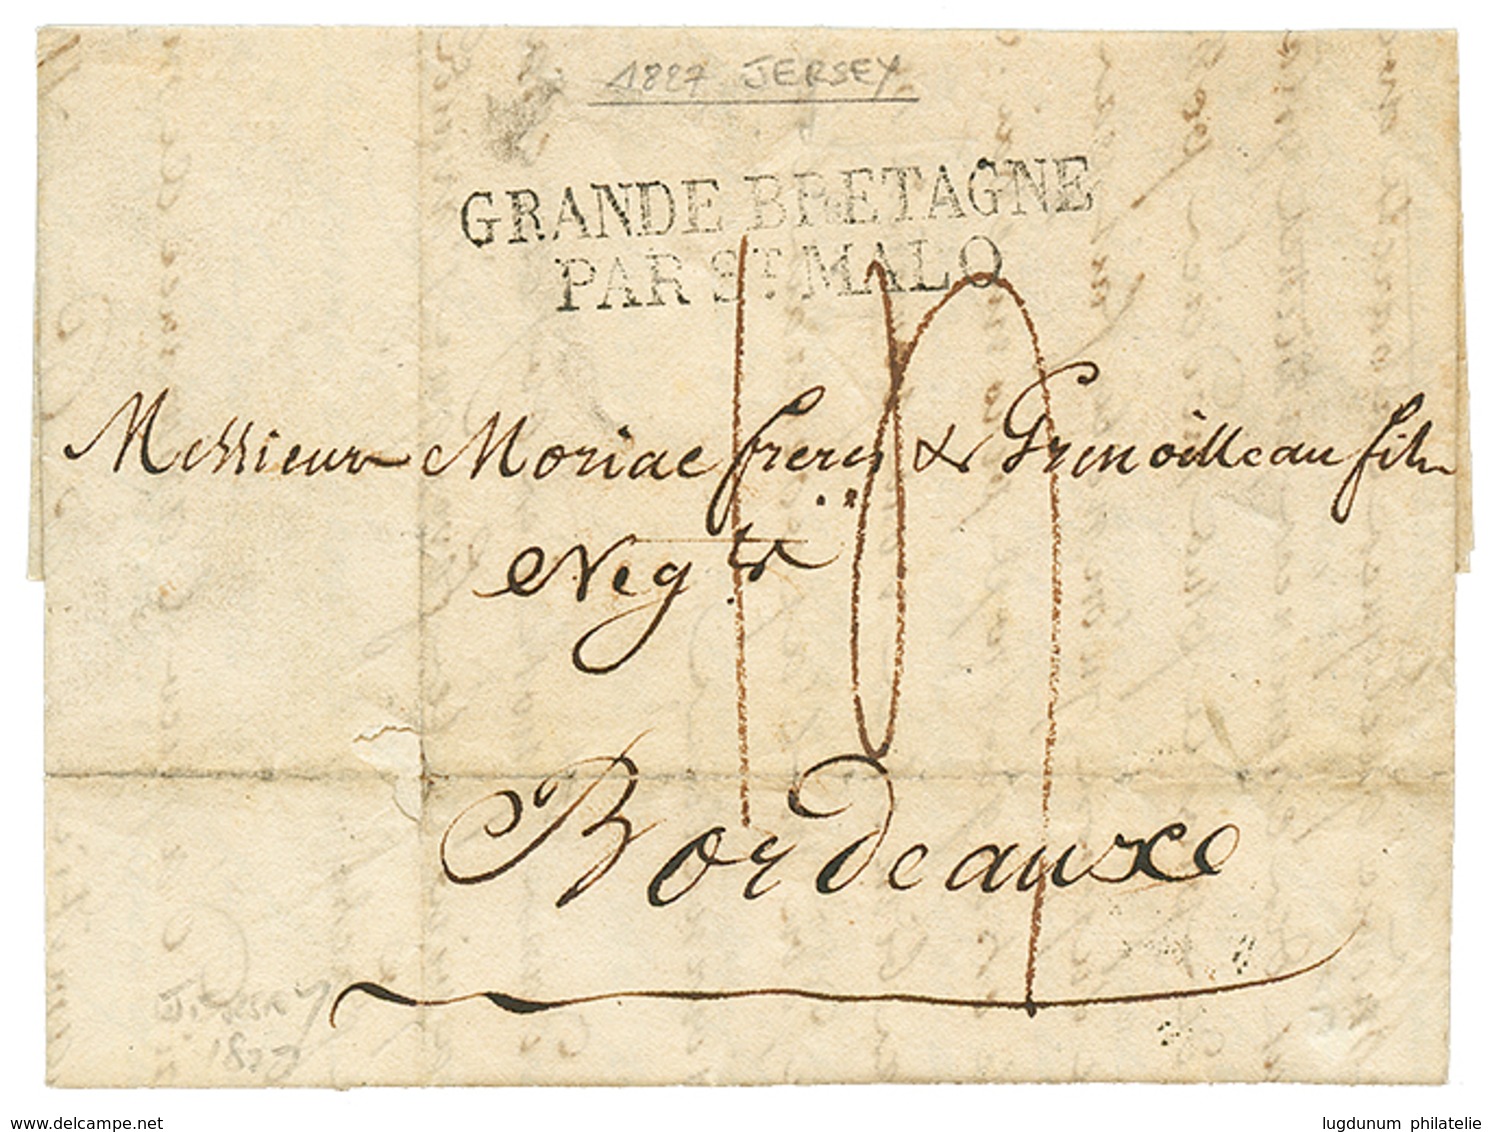 1827 JERSEY
GRANDE BRETAGNE
PAR ST. MALO
Messieurs Moriac freres & Grenoilleau fils
Negts
Bordeaux
Jersey
1827
www.delcampe.net
lugdunum philatelie